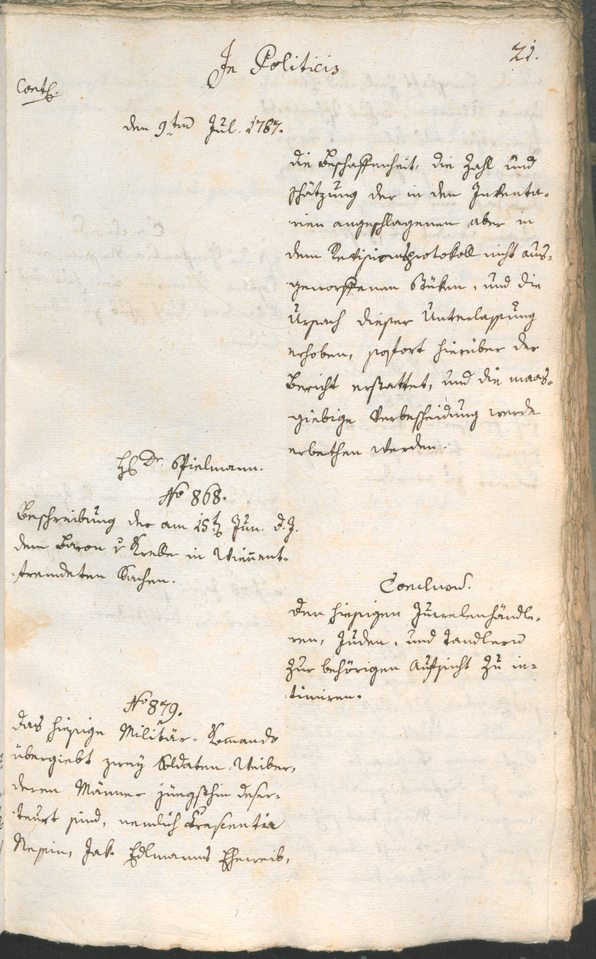 In Politicis
21.
Conth.
den 9ten Jul. 1787.
die Beschaffenheit, die Zahl und
Schätzung der in den Inventa-
rien angeschlagenen, aber in
dem Revisionsprotokoll nicht aus-
geworffenen Stüken, und die
Ursach dieser Unterlassung
erhoben, sofort hierüber der
Bericht erstattet, und die maas-
giebige Verbescheidung werde
erbethen werden.
H de Spielmann.
No 868.
Beschreibung der am 15t Jun. d. J.
dem Baron v in Wien ent-
fremdeten Sachen.
Conclusum.
Den hiesigen Juwelenhändle-
ren, Juden, und Tandlern
zur behörigen Aufsicht zu in-
timiren.
No 879.
Das hiesige Militär-Komando
übergiebt zwey Soldaten Weiber,
deren Männer jüngsthin deser-
teurt sind, nemlich Krescentia
Jak. Edlmanns Eheweib,